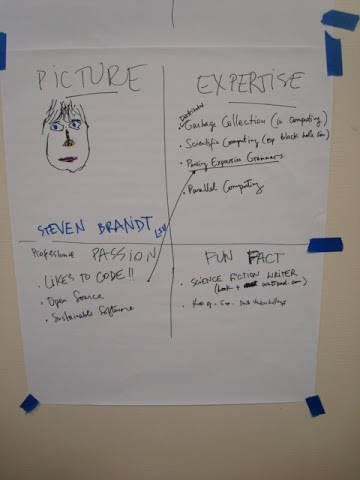 PICTURE
STEVEN BRANDT LSU
EXPERTISE
Distributed
• Garbage Collection (in Computing)
• Scientific Computing (esp black hole sim)
• Parsing Expression Grammars
• Parallel Computing
Professional PASSION
• LIKES TO CODE!!
• Open Source
• Sustainable Software
FUN FACT
• SCIENCE FICTION WRITER
(book + wattpad.com)